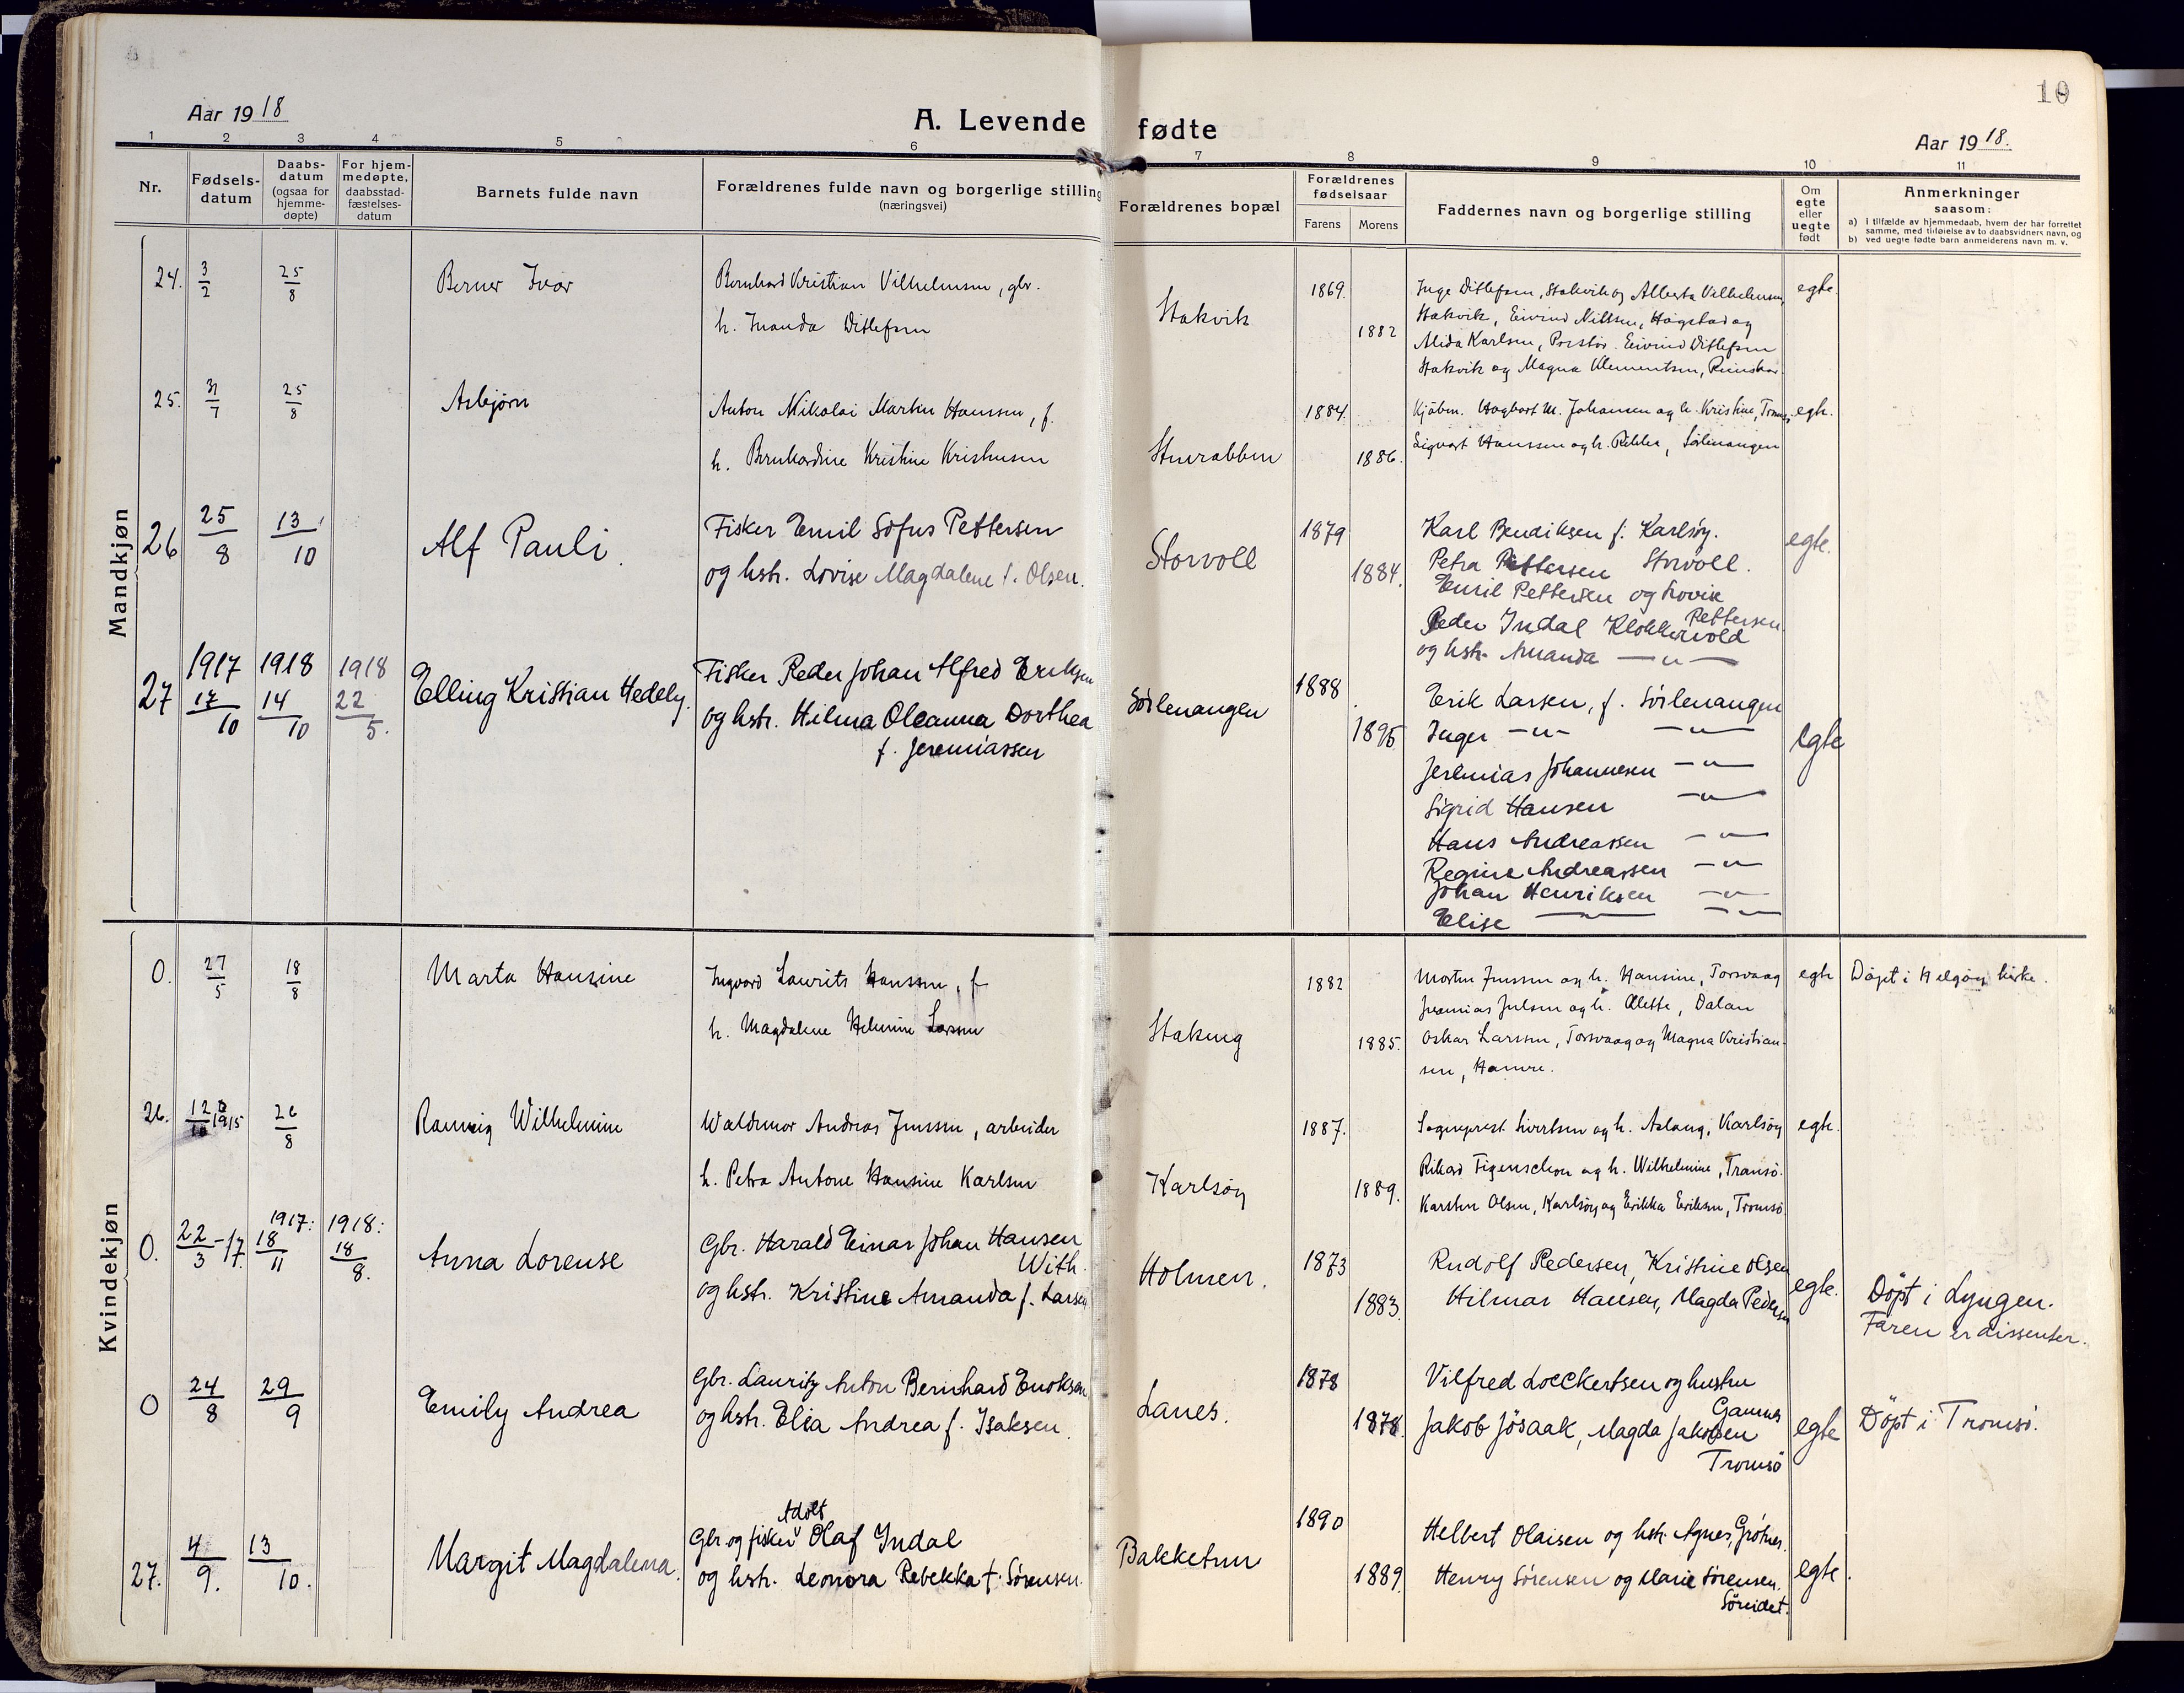 10
Aar 1918
A. Levende fødte
Aar 1918.
1 2 3 4 5 6 7 8 9 10 11
Nr.
Fødselsdatum
Daabsdatum (ogsaa for hjemmedøpte)
For hjemmedøpte, daabsstadfæstelsesdatum
Barnets fulde navn
Forældrenes fulde navn og borgerlige stilling
(næringsvei)
Forældrenes bopæl
Forældrenes fødselsaar
Farens Morens
Faddernes navn og borgerlige stilling
Om egte eller uegte født
Anmerkninger
saasom:
a) i tilfælde av hjemmedaab, hvem der har forrettet
samme, med tilføielse av to daabsvidners navn, og
b) ved uegte fødte barn anmelderens navn m. v.
Mandkjøn
24. 3/2 25/8 Berner Ivar
Bernhard Kristian Vilhelmsen, gbr.
h. Inanda Ditlefsen
Stakvik 1869. 1882
Inge Ditlefsen, Stakvik og Alberta Vilhelmsen,
Stakvik, Eivind Nilssen, Hagstad og
Alida Karlsen, Eivind Ditlefsen
Stakvik og Magna Klementsen,
egte.
25. 31/7 25/8 Asbjørn
Anton Nikolai Martin Hanssen, f.
h. Bernhardine Kristine Kristensen
1884. 1886.
Kjøbm. Hagbart M. Johansen og h. Kristine, Tromsø
Sigvart Hanssen og h. Rikka, Sörlenangen
egte.
26 25/8 13/10 Alf Pauli.
Fisker Emil Sofus Pettersen
og hstr. Lovise Magdalene f. Olsen.
Storvoll 1879 1884.
Karl Bendiksen f. Karlsøy.
Petra Pettersen Storvoll.
Emil Pettersen og Lovise
Pettersen.
Peder Indal Klokkervold
og hstr. Amanda —"—
egte.
27 1917 17/10 1918 14/10 1918 22/5. Elling Kristian Hedely.
Fisker Peder Johan Alfred Eriksen
og hstr. Hilma Oleanna Dorthea
f. Jeremiassen
Sörlenangen 1888 1895
Erik Larsen, f. Sörlenangen
Inger —"— —"—
Jeremias Johannesen —"—
Sigrid Hansen —"—
Hans Andreassen —"—
Regine Andreassen —"—
Johan Henriksen —"—
Elise —"— —"—
egte
Kvindekjøn
0. 27/5 18/8 Marta Hansine
Ingvard Laurits Hanssen, f
h. Magdalene Helmine Larssen
1882 1885.
Morten Jenssen og h. Hansine, Torsvaag
Jeremias Julsen og h. Alette, Dalan
Oskar Larssen, Torsvaag og Magna Kristian-
sen, Hamre.
egte Döpt i Helgöy kirke.
26. 12/10 1915 26/8 Ranveig Wilhelmine
Waldemar Andreas Jenssen, arbeider
h. Petra Antone Hansine Karlsen
Karlsöy 1887. 1889.
Sogneprest Sivertsen og h. Aslaug, Karlsöy
Rikard Figenschou og h. Wilhelmine, Tromsö.
Karsten Olsen, Karlsöy og Erikka Eriksen, Tromsö
egte.
0. 22/3-17. 1917: 18/11 1918: 18/8. Anna Lorense
Gbr. Harald Einar Johan Hansen
With.
og hstr. Kristine Amanda f. Larsen
Holmen. 1873 1883.
Rudolf Pedersen, Kristine Olsen
Hilmar Hansen, Magda Pedersen
egte. Döpt i Lyngen.
Faren er dissenter.
0 24/8 29/9 Emily Andrea
Gbr. Lauritz Anton Bernhard Enoksen
og hstr. Elia Andrea f. Isaksen.
Lanes. 1878 1878.
Vilfred Lockertsen og hustru
Gamnes
Jakob Jösaak, Magda Jakobsen
Tromsö
egte Döpt i Tromsö.
27. 4/9. 13/10. Margit Magdalena.
Adolf
Gbr. og fisker Olaf Indal
og hstr. Leonora Rebekka f. Sörensen.
Bakketun 1890 1889.
Helbert Olaisen og hstr. Agnes, Grötnes.
Henry Sörensen og Marie Sörensen.
Söreidet.
egte.